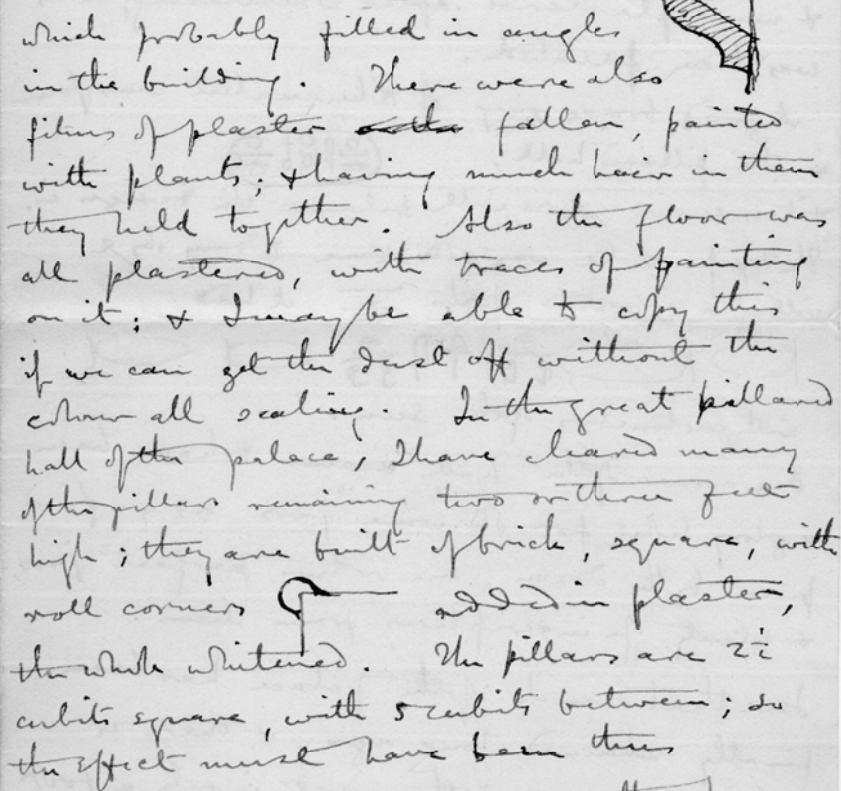 which probably filled in angles
in the building. There were also
films of plaster fallen, painted
with plants; & having much hair in them
they held together. Also the floor was
all plastered, with traces of painting
on it; & I may be able to copy this
if we can get the dust off without the
colour all scaling. In the great pillared
hall of the palace, I have cleared many
of the pillars remaining two or three feet
high; they are built of brick, square, with
roll corners added in plaster,
the whole whitened. The pillars are 2½
cubits square, with 5 cubits between; so
the effect must have been thus